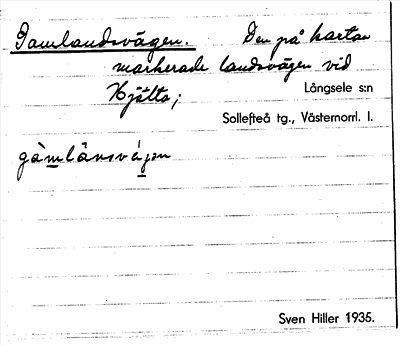 Gamlandsvägen. Den på kartan
markerade landsvägen vid
Hjälta; Långsele s:n
Sollefteå tg., Västernorrl. l.
gàmlànsvä́gen
Sven Hiller 1935.